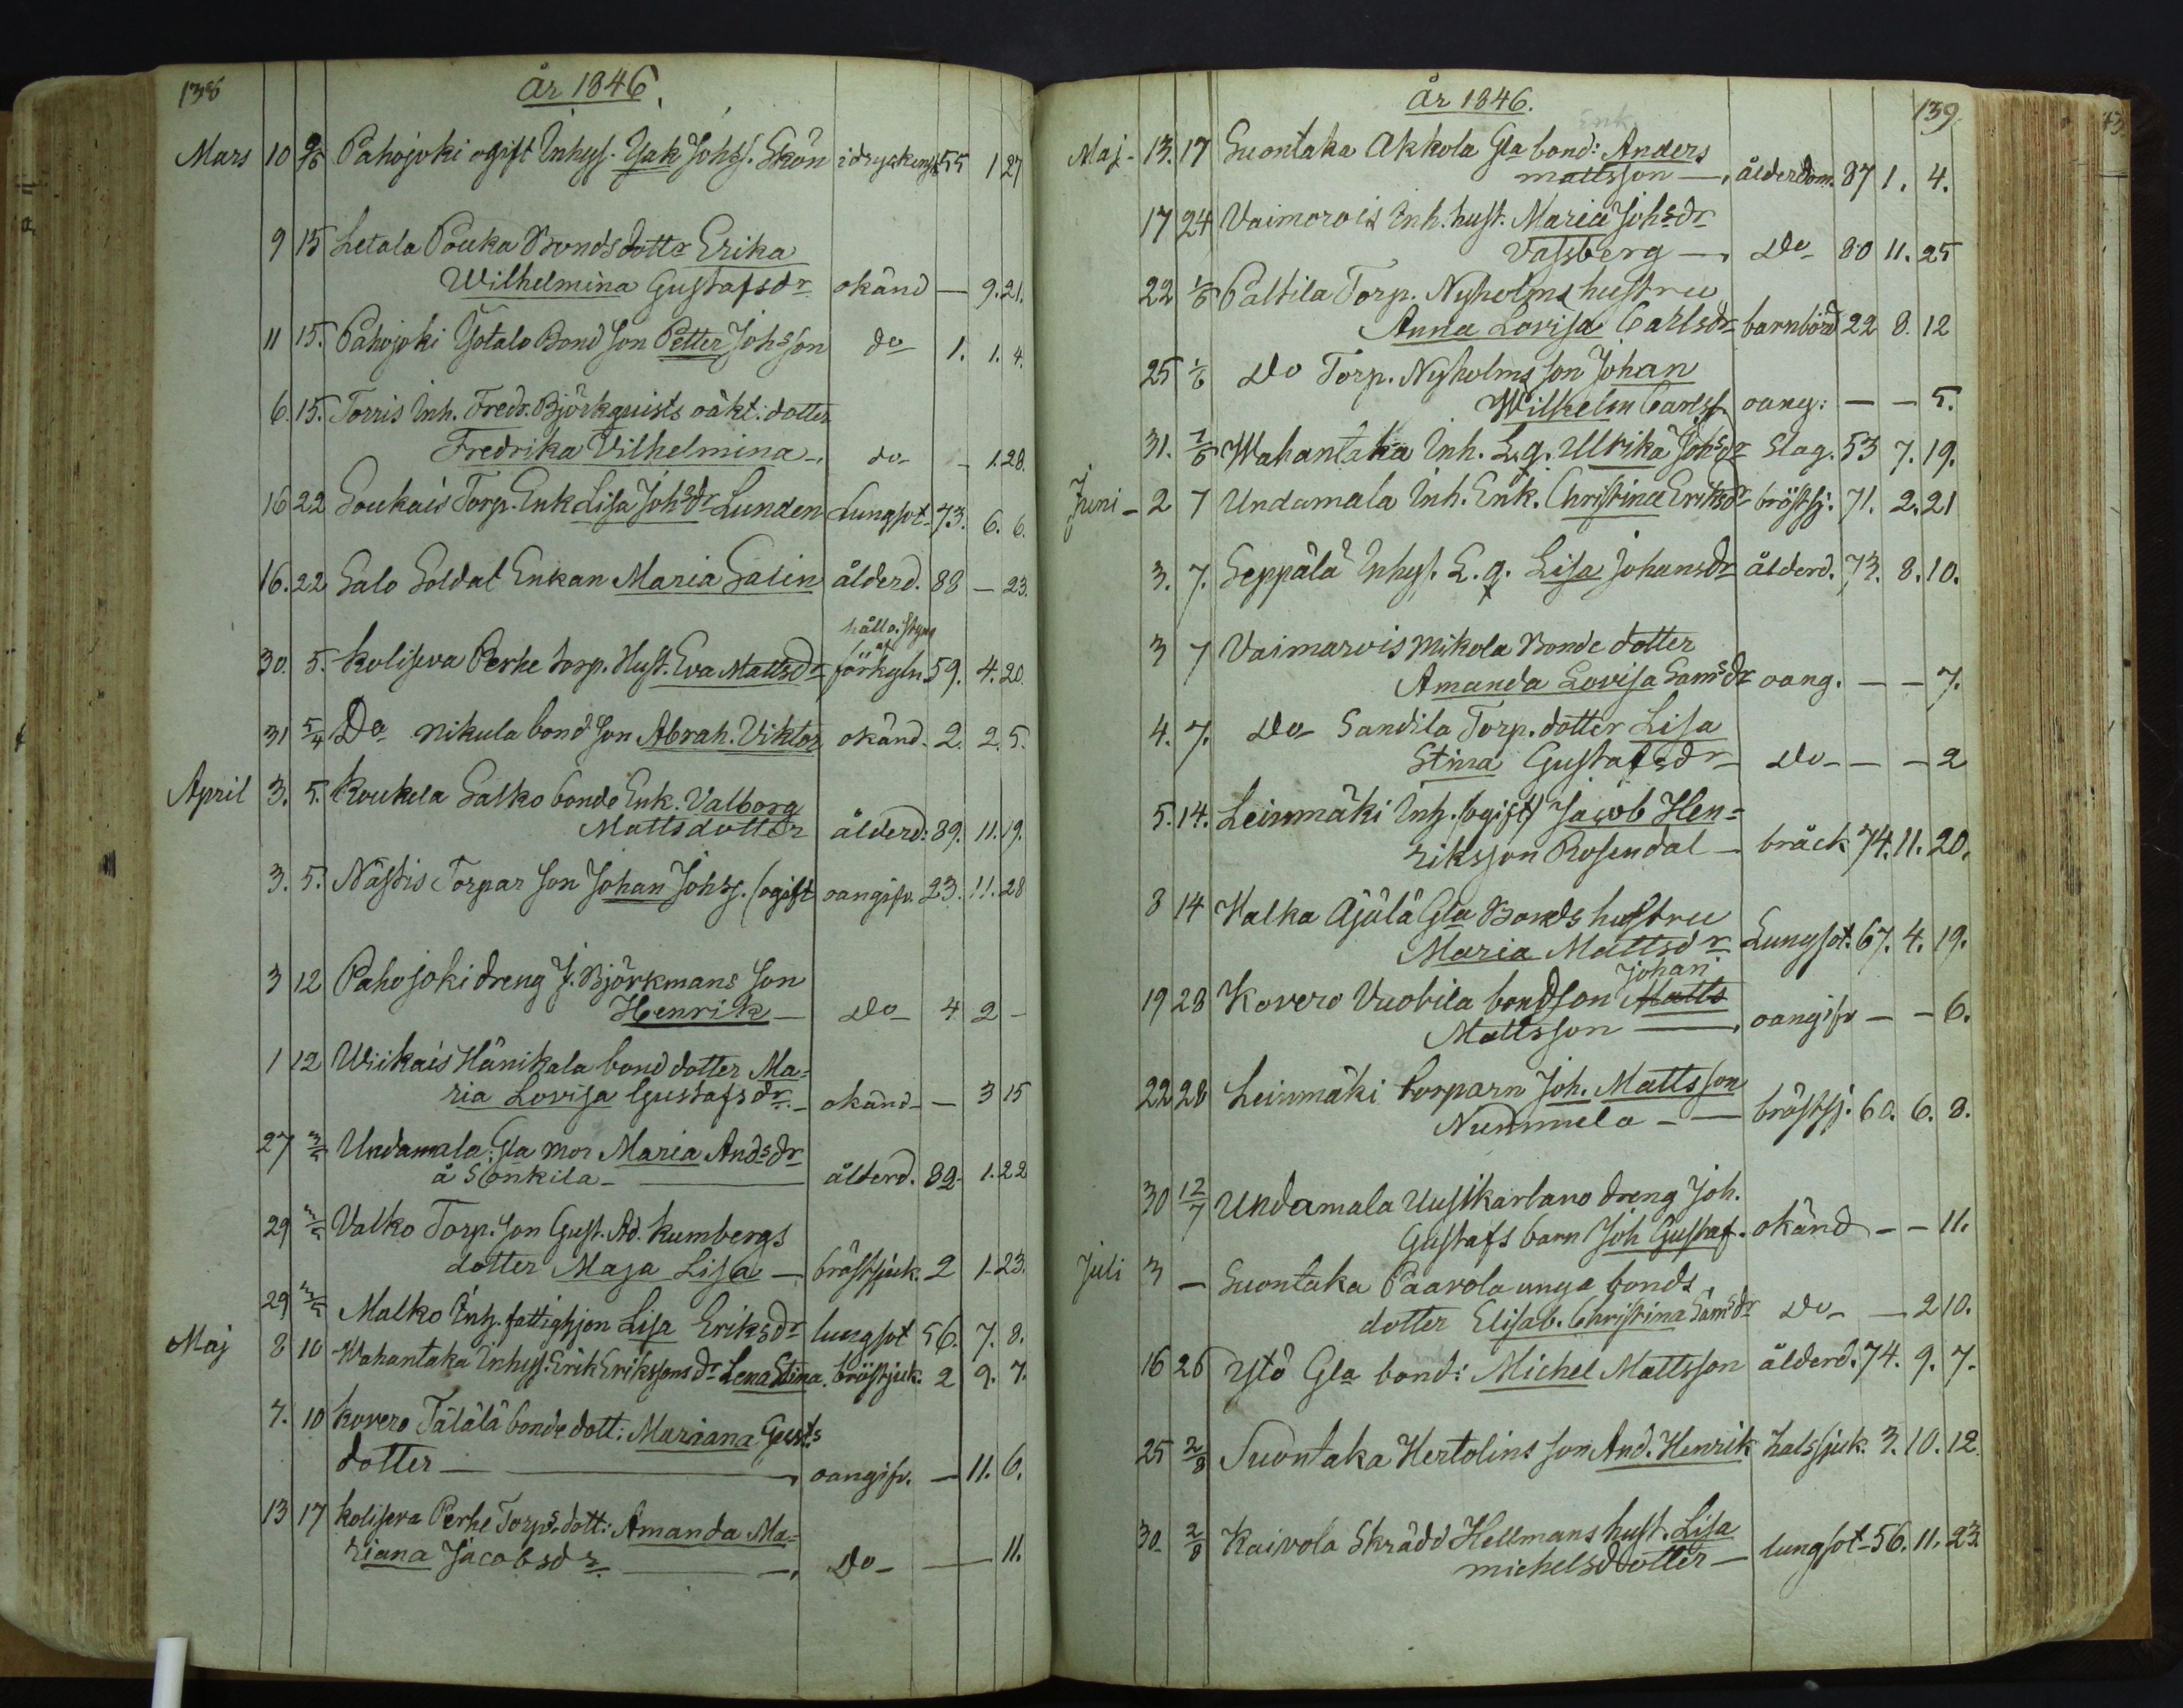 138
År 1846.
Mars 10 Pahojoki ogift Inhys. Isak Johss. Skön 55 1 27
9 15 Letala Pouka Bonds dottr Erika
Wilhelmina Gustafsdr okänd — 9. 21.
11 15. Pahojoki Yotalo Bond son Petter Johsson do 1. 1. 4.
6. 15. Torris Inh. Fredr. Björkquists oäkt: dotter
Fredrika Vilhelmina —, do — 1. 28.
16 22 Soukais Torp. Enk Lisa Johsdr Lunden Lungsot 73. 6. 6.
16. 22 Salo Soldat Enkan Maria Salin ålderd. 88 — 23.
håll o. styng
af
30. 5. Koliseva Perhe torp. Hust. Eva Mattsdr förkyln. 59. 4. 20.
31 5/4 Do Nikula bond son Abrah. Viktor okänd. 2. 2. 5.
April 3. 5. Koukela Salko bonde Enk. Valborg
Mattsdotter ålderd: 89. 11. 19.
3. 5. Nästis Torpar son Johan Johss. (ogift oangifv. 23. 11. 28
3 12 Pahojoki dreng J. Björkmans son
Henrik — Do 4 2 —
1 12 Wiikais Hänikala bond dotter Ma=
ria Lovisa Gustafsdr. — okänd — — 3 15
27 3/5 Undamala Gla mor Maria Andsdr
å Sönkila — ålderd. 82. 1. 22
29 3/5 Valko Torp. son Gust. Ad. Kumbergs
dotter Maja Lisa — bröstsjuk. 2 1. 23.
29 3/5 Malko Inh. fattighjon Lisa Eriksdr lungsot 56. 7. 8.
Maj 8 10 Wahantaka Inhys. Erik Erikssons dr Lena Stina. bröstsjuk. 2 9. 7.
7. 10 Kovero Tälälä bonde dott: Mariana Gusts
dotter —, oangifv. — 11. 6.
13 17 Koliseva Perhe Torps. dott: Amanda Ma=
riana Jacobsdr. —, Do — — 11.
År 1846.
139.
Enk
Maj - 13. 17 Suontaka Akkola Gla bond: Anders
mattsson —, ålderdom. 87 1. 4.
17 24 Vaimorois Inh. hust. Maria Johsdr
Vassberg —, Do 80 11. 25
22 1/6 Paltila Torp. Nyholms hustru
Anna Lovisa Carlsdr barnbörd 22 8. 12
25 1/6 Do Torp. Nyholms son Johan
Wilhelm Carlss. oang: — — 5.
31. 7/6 Wahantaka Inh. L. q. Ullrika Johsdr Slag. 53 7. 19.
Juni - 2 7 Undamala Inh. Enk. Christina Eriksdr bröstsj: 71. 2. 21
3. 7. Seppälä Inhys. L. q. Lisa Johansdr ålderd. 73. 8. 10.
3 7 Vaimarois Mikola Bonde dotter
Amanda Lovisa Samsdr oang. — — 7.
4. 7. Do Sandila Torp. dotter Lisa
Stina Gustafsdr Do — — — 2
5. 14. Leinmäki Inh. (ogift) Jacob Hen=
riksson Rosendal — bråck 74. 11. 20.
8 14 Valka Äjälä Gla Bonds hustru
Maria Mattsdr Lungsot. 67. 4. 19.
Johan
19 28 Kovero Vuobila bondson Matts
Mattsson —, oangifv — — 6.
22 28 Leinmäki torparn Joh. Mattsson
Nummela — — bröstsj. 60. 6. 8.
30 12/7 Undamala Uusikartano dreng Joh.
Gustafs barn Joh Gustaf. okänd — — 11.
Juli 3 — Suontaka Paavola unga bonds
dotter Elisab. Christina Samsdr Do — — 2 10.
16 26 Ylö Gla bond: Michel Mattsson ålderd. 74. 9. 7.
25 2/8 Suontaka Hertolins son And. Henrik halssjuk. 3. 10. 12.
30. 2/8 Kaivola Skrädd Hellmans hust. Lisa
michelsdotter — lungsot 56. 11. 23